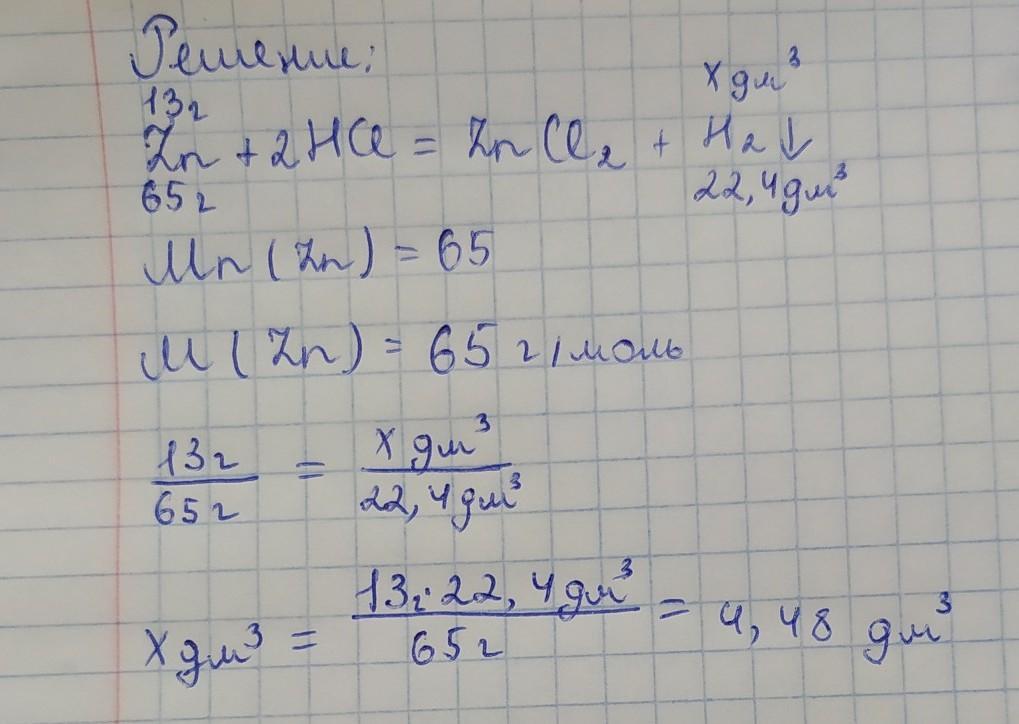 Решение:
13г x дм³
Zn + 2HCl = ZnCl₂ + H₂↓
65г 22,4дм³
Mr(Zn) = 65
M(Zn) = 65 г/моль
13г/65г = x дм³/22,4дм³
x дм³ = 13г·22,4дм³/65г = 4,48 дм³